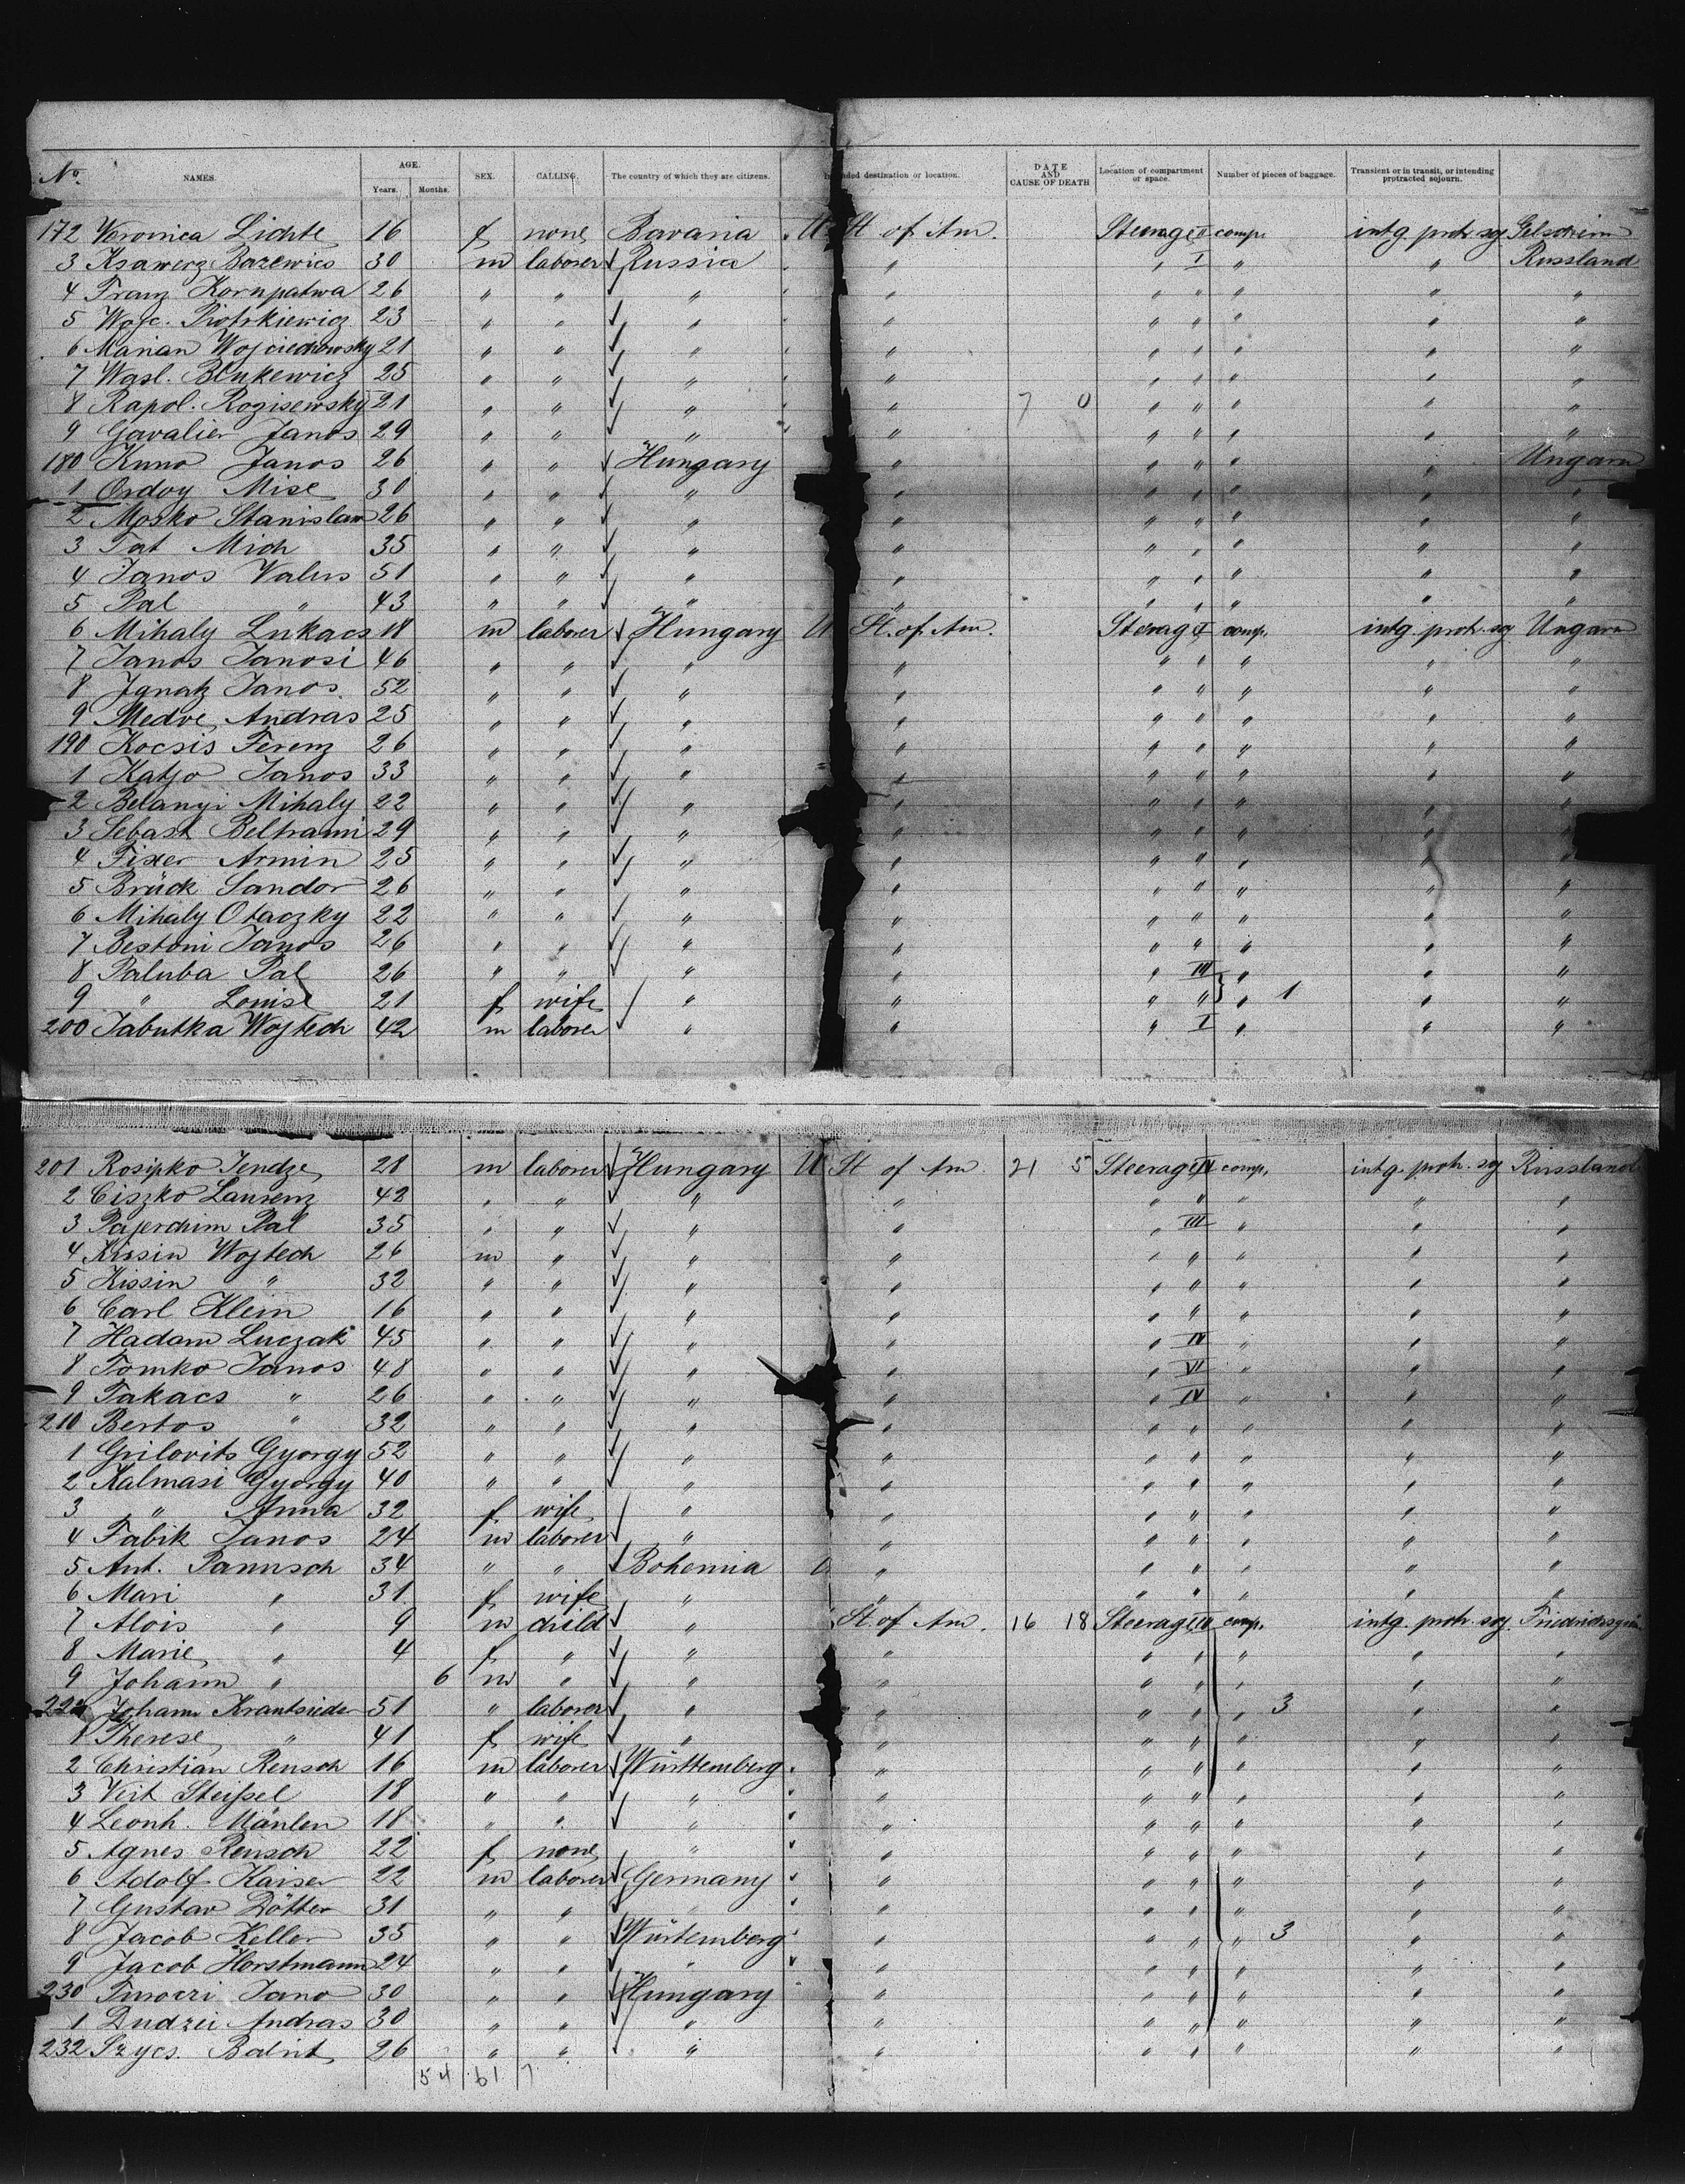 No. NAMES. AGE. Years. Months. SEX. CALLING. The country of which they are citizens. nded destination or location. DATE AND CAUSE OF DEATH Location of compartment or space. Number of pieces of baggage. Transient or in transit, or intending protracted sojourn.
172 Veronica Lichte 16 f none Bavaria U St of Am. Steerage II comp. intg protr soj
3 Ksawerz Bazewics 30 m laborer Russia " " I " " Russland
4 Franz Kornpatwa 26 " " " " " " " " "
5 Wojc. Piotrkiewicz 23 " " " " " " " " "
6 Marian Wojciechowsky 21 " " " " " " " " "
7 Wasl. 25 " " " " " " " " "
8 Rapol. Rogisewsky 21 " " " " 7 0 " " " " "
9 Gavalier Janos 29 " " " " " " " " "
180 Kuno Janos 26 " " Hungary " " " " " Ungarn
1 Ordog Mise 30 " " " " " " " " "
2 Mosko Stanislaw 26 " " " " " " " " "
3 Tat Mich 35 " " " " " " " " "
4 Janos Valus 51 " " " " " " " " "
5 Pal " 43 " " " " " " " " "
6 Mihaly Lukacs 18 m laborer Hungary U St. of Am. Steerage I comp. intg protr. soj Ungarn
7 Janos Janosi 46 " " " " " " " " "
8 Ignatz Janos 52 " " " " " " " " "
9 Medve Andras 25 " " " " " " " " "
190 Kocsis Ferenz 26 " " " " " " " " "
1 Katjo Janos 33 " " " " " " " " "
2 Belanyi Mihaly 22 " " " " " " " " "
3 Sebast Beltrami 29 " " " " " " " " "
4 Fixer Armin 25 " " " " " " " " "
5 Brück Sandor 26 " " " " " " " " "
6 Mihaly Otaczky 22 " " " " " " " " "
7 Bestoni Janos 26 " " " " " " " " "
8 Paluba Pal 26 " " " " " III " " "
9 " Louise 21 f wife " " " " " 1 " "
200 Jabutka Wojtech 42 m laborer " " " I " " "
201 Rosipko Jendze 28 m laborer Hungary U St of Am. 21 5 Steerage II comp. intg. protr. soj Russland
2 Ciszko Laurenz 42 " " " " " " " " "
3 Pajerchim Pal 35 " " " " " III " " "
4 Kissin Wojtech 26 m " " " " " " " "
5 Kissin " 32 " " " " " " " " "
6 Carl Klein 16 " " " " " " " " "
7 Hadam Luczak 45 " " " " " IV " " "
8 Tomko Janos 48 " " " " " VI " " "
9 Takacs " 26 " " " " " IV " " "
210 Bertos " 32 " " " " " " " " "
1 Grilovits Gyorgy 52 " " " " " " " " "
2 Kalmasi Gyorgy 40 " " " " " " " " "
3 " Anna 32 f wife " " " " " " "
4 Fabik Janos 24 m laborer " " " " " " "
5 Ant. Pannsch 34 " " Bohemia U " " " " " "
6 Mari " 31 f wife " " " " " " "
7 Alois " 9 m child " St. of Am. 16 18 Steerage IV comp. intg. protr. soj
8 Marie " 4 f " " " " " " " "
9 Johann " 6 m " " " " " " " "
220 Johann Krantsieder 51 " laborer " " " " " 3 " "
1 Therese " 41 f wife " " " " " " "
2 Christian Rensch 16 m laborer Württemberg " " " " " "
3 Veit Steißel 18 " " " " " " " " "
4 Leonh. Mänlen 18 " " " " " " " " "
5 Agnes Rensch 22 f none " " " " " " "
6 Adolf Kaiser 22 m laborer Germany " " " " " "
7 Gustav Dötter 31 " " " " " " " "
8 Jacob Keller 35 " " Würtemberg " " " " 3 " "
9 Jacob Horstmann 24 " " " " " " " " "
230 Turoczi Jano 30 " " Hungary " " " " " "
1 Dudzii Andras 30 " " " " " " " " "
232 Szycs. Balint 26 " " " " " " " " "
54 61 7